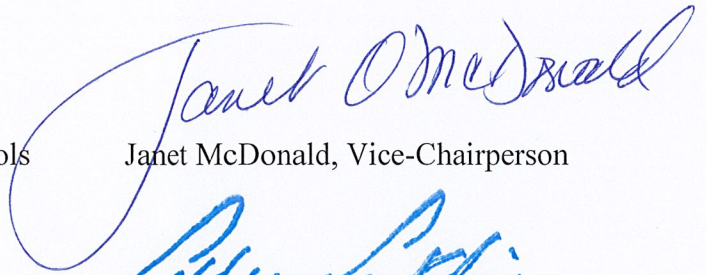 Janet O McDonald
ols Janet McDonald, Vice-Chairperson